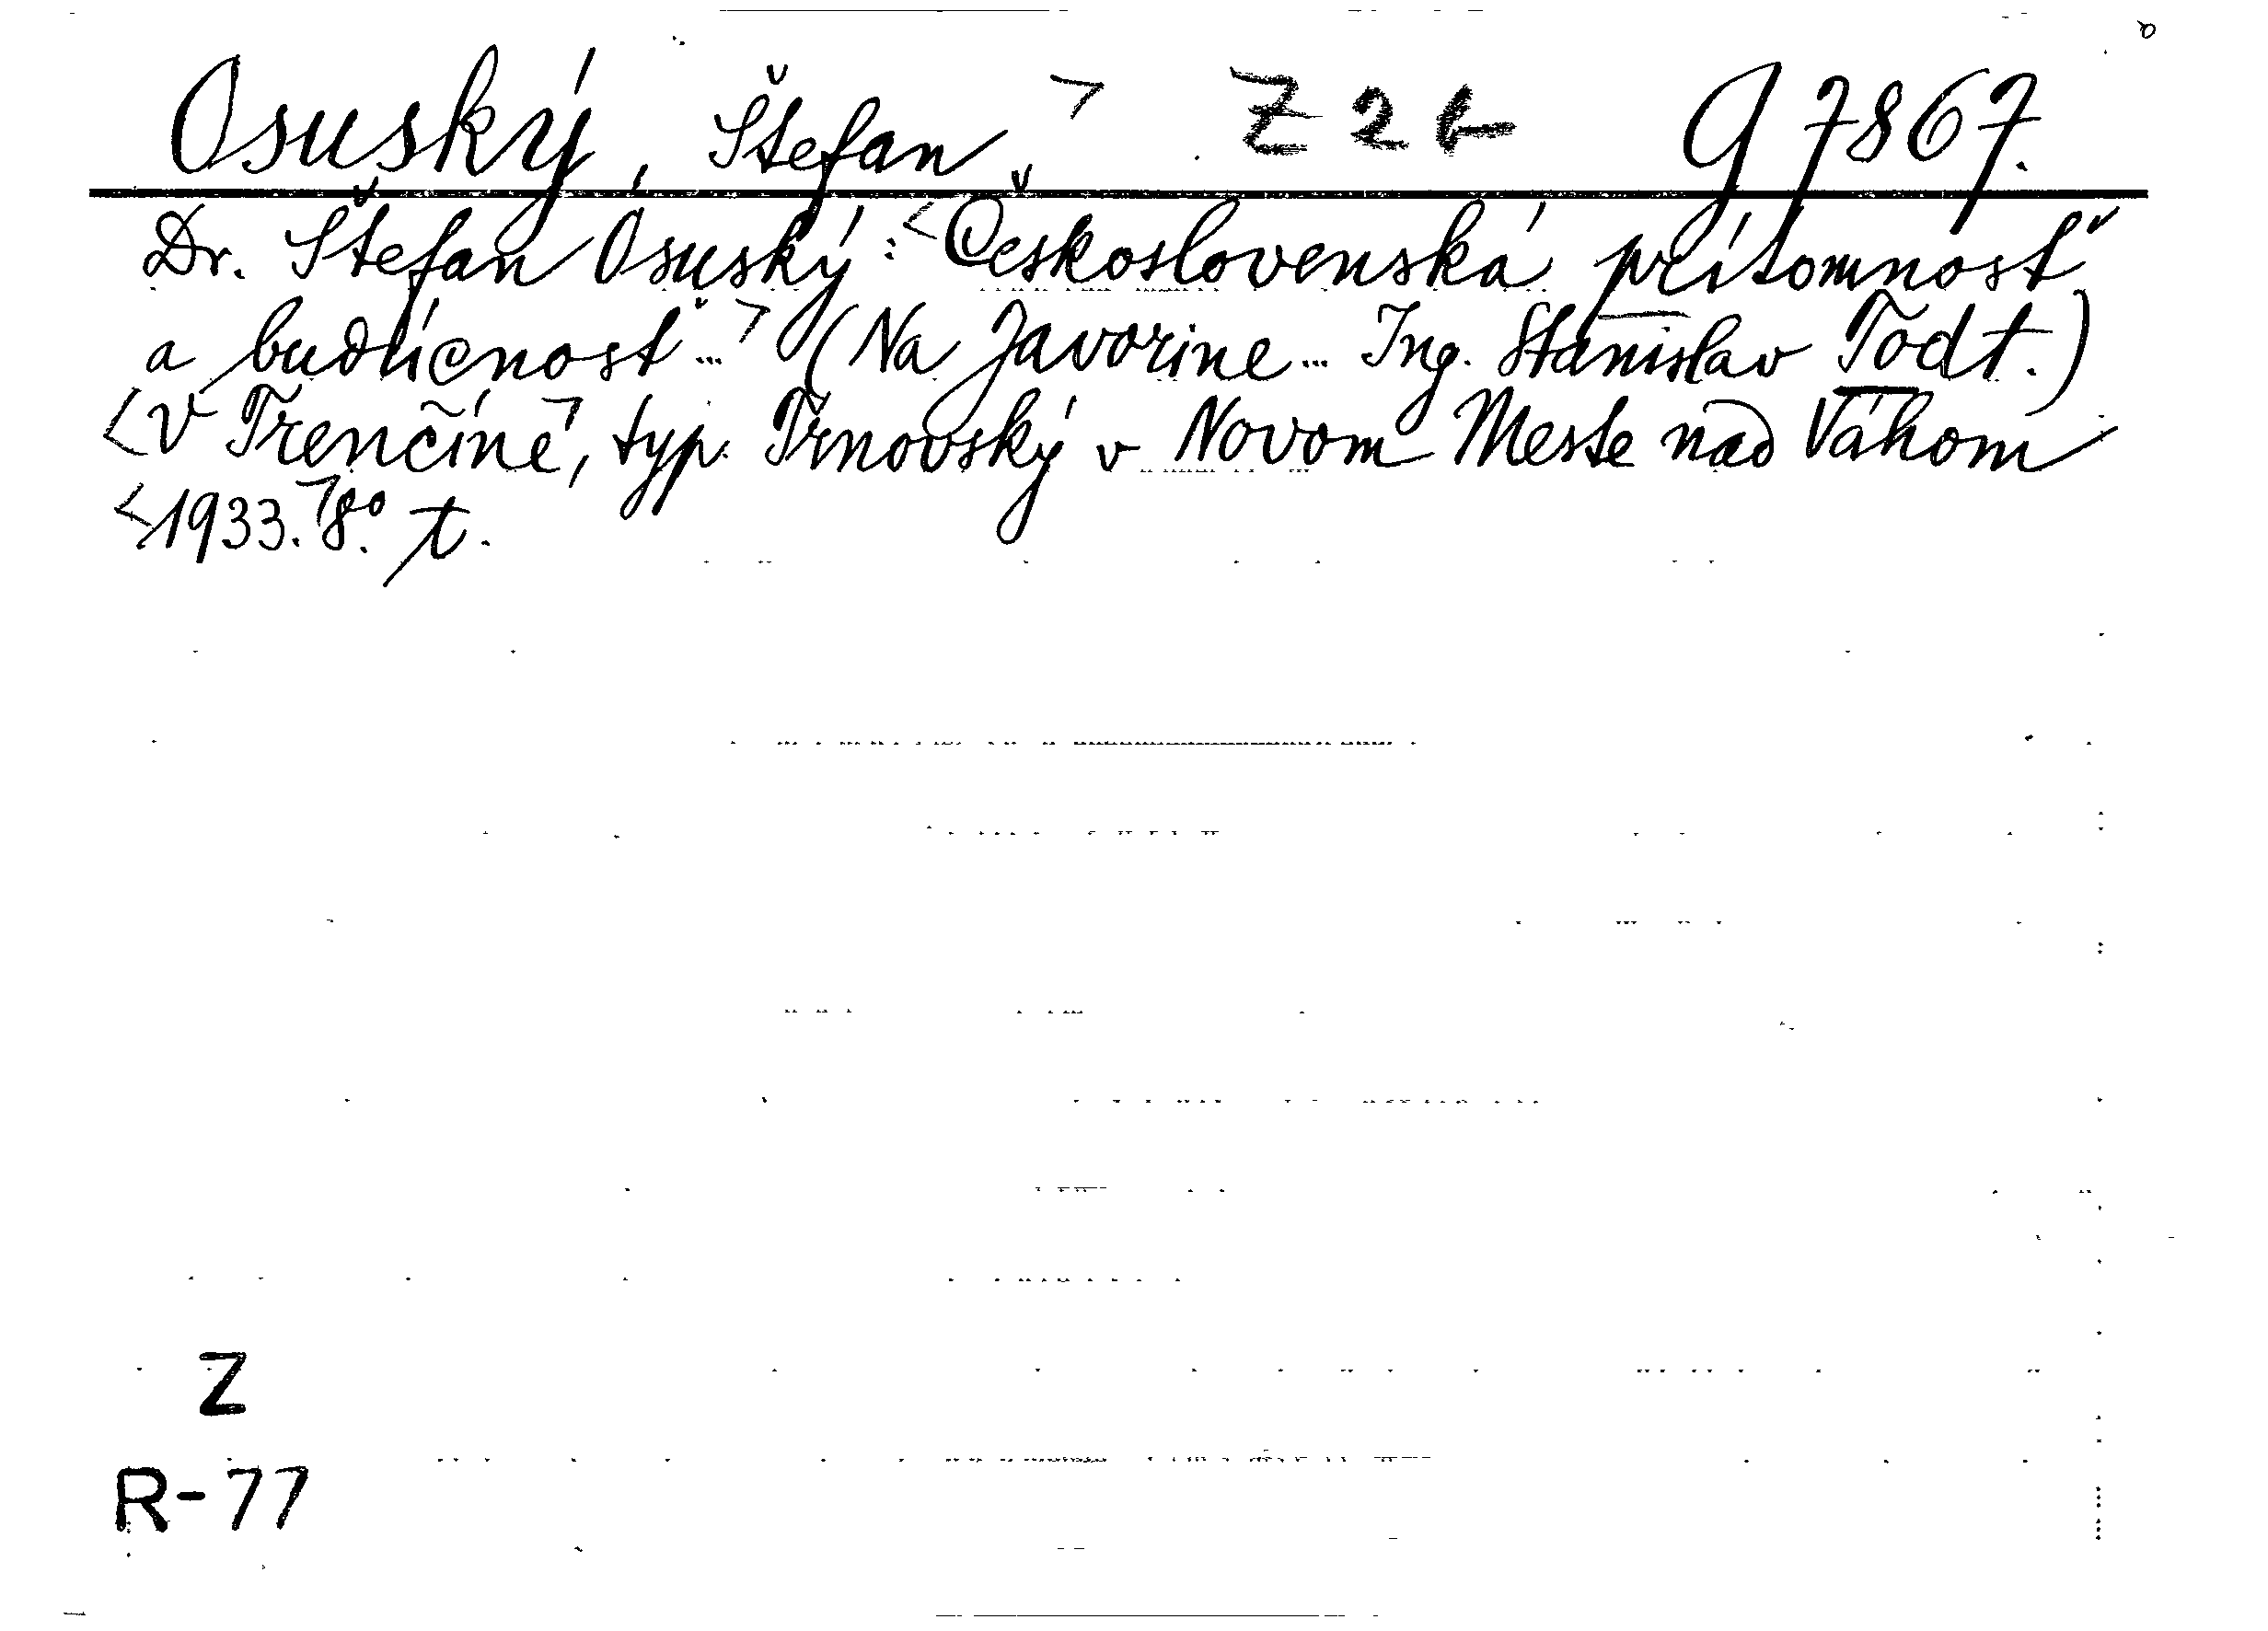 Osuský, Štefan. > Z 2 t- G 7867.
Dr. Štefan Osuský: <Československá prítomnosť
a budúcnosť...> (Na Javorine... Ing. Stanislav Todt.)
<V Trenčíne>, typ. Trnovský v Novom Meste nad Váhom
<1933.> 8°. t.
Z
R-77